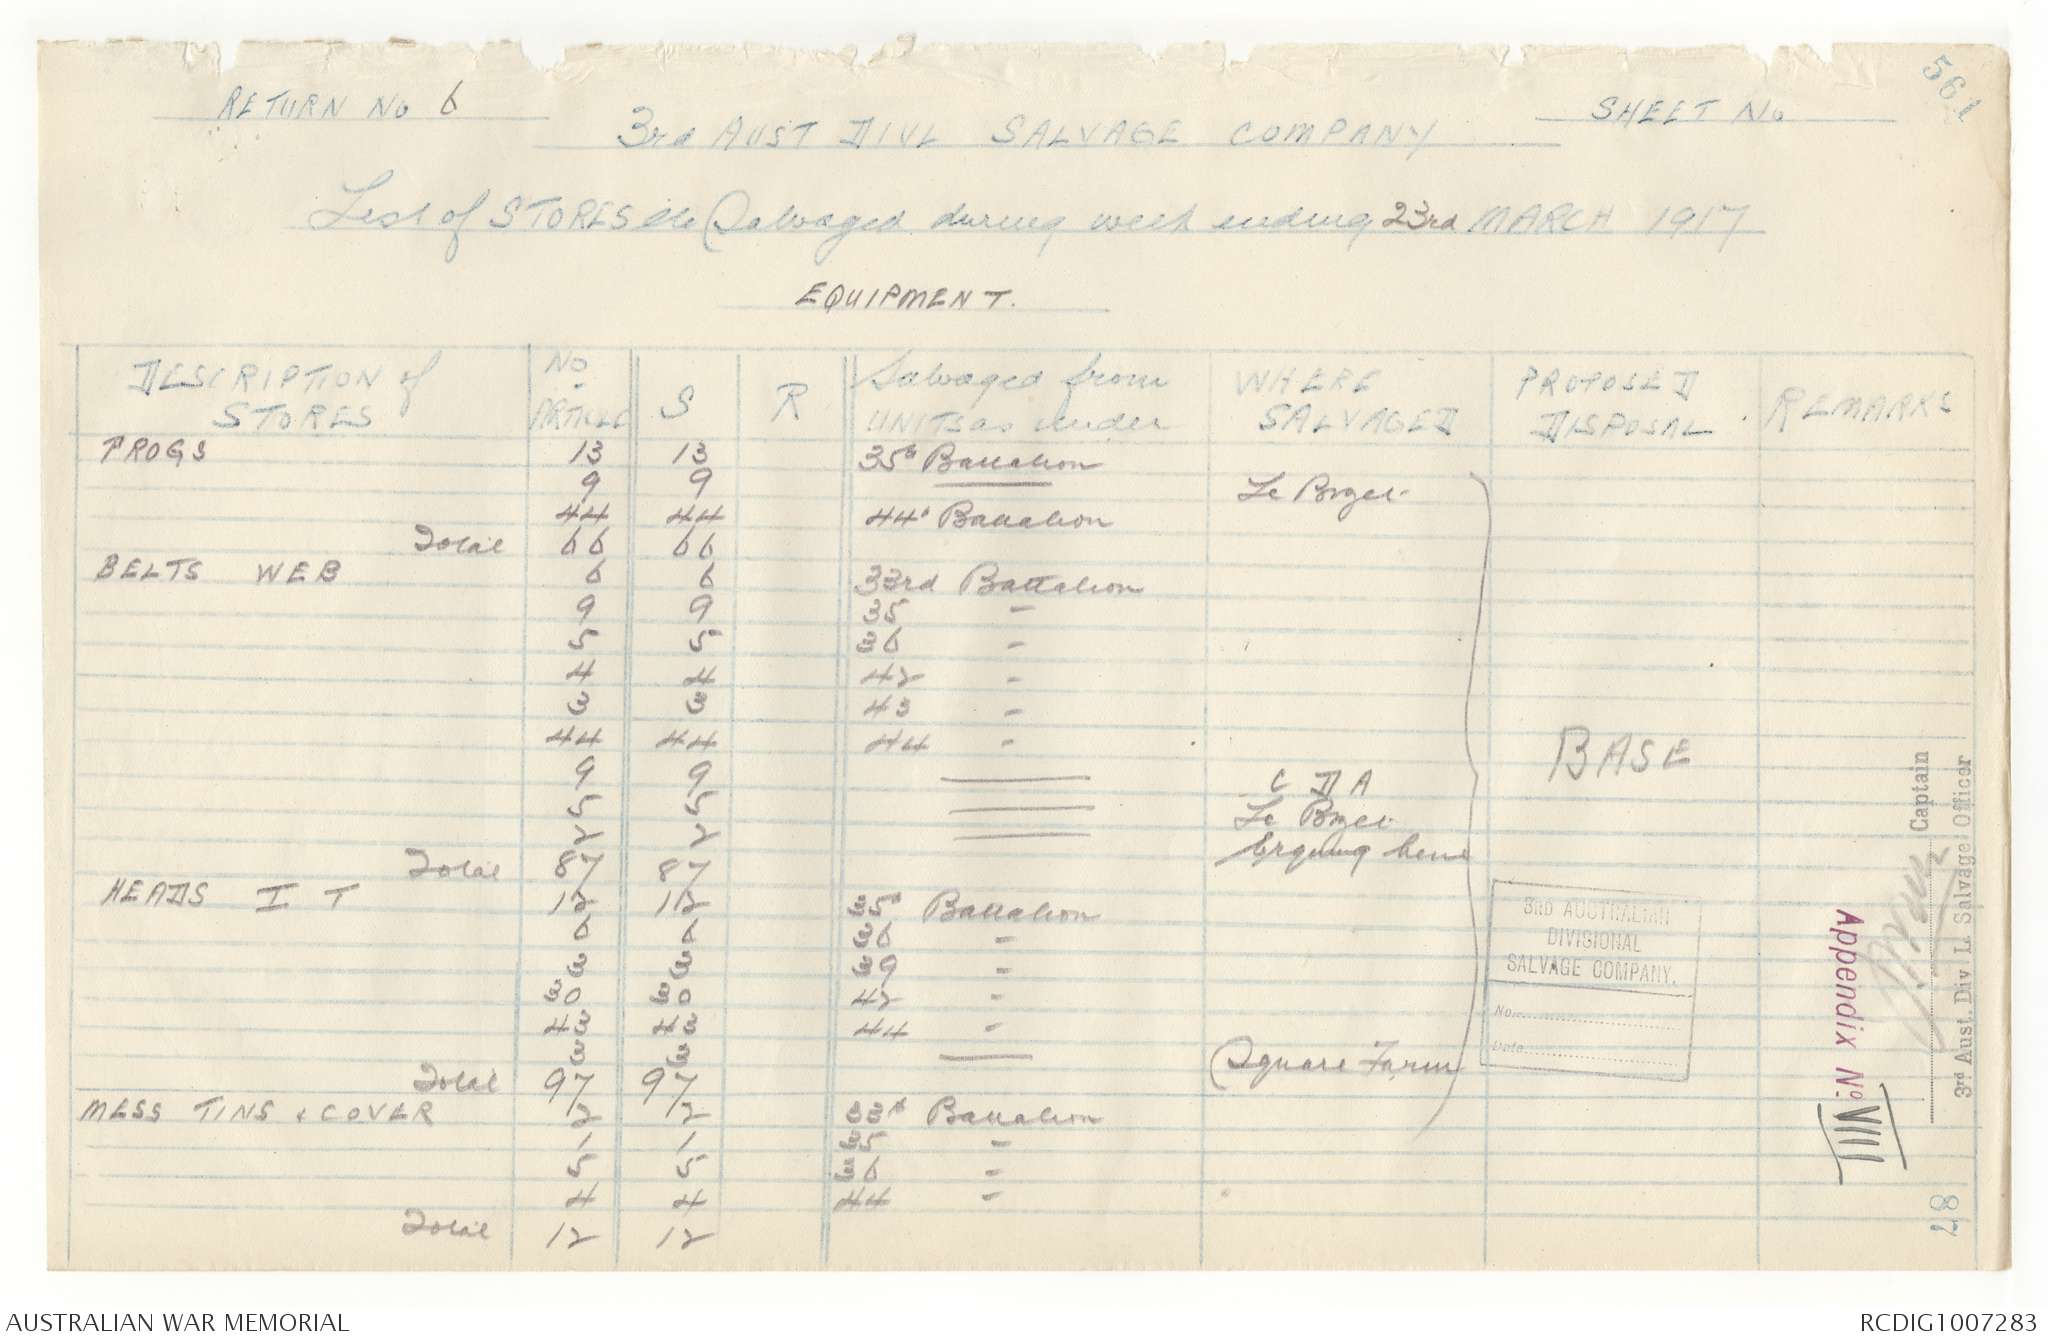 RETURN No 6
SHEET No
561
3rd AUST DIVL SALVAGE COMPANY
List of STORES etc Salvaged during week ending 23rd MARCH 1917
EQUIPMENT.
DESCRIPTION of STORES | No ARTICLE | S | R | Salvaged from UNITS as under | WHERE SALVAGED | PROPOSED DISPOSAL | REMARKS
FROGS 13 13 35th Battalion
9 9 —— Le Bizet
44 44 44th Battalion
Total 66 66
BELTS WEB 6 6 33rd Battalion
9 9 35 "
5 5 36 "
4 4 42 "
3 3 43 "
44 44 44 "
9 9 —— C D A
5 5 —— Le Bizet
2 2 ——
Total 87 87
BASE
HEADS I T 12 12 35th Battalion
6 6 36 "
3 3 39 "
30 30 42 "
43 43 44 "
3 3 —— Square Farm
Total 97 97
MESS TINS & COVER 2 2 33rd Battalion
1 1 35 "
5 5 36 "
4 4 44 "
Total 12 12
3RD AUSTRALIAN
DIVISIONAL
SALVAGE COMPANY.
No.
Date
Captain
3rd Aust. Div L. Salvage Officer
Appendix No. VIII
87
AUSTRALIAN WAR MEMORIAL
RCDIG1007283